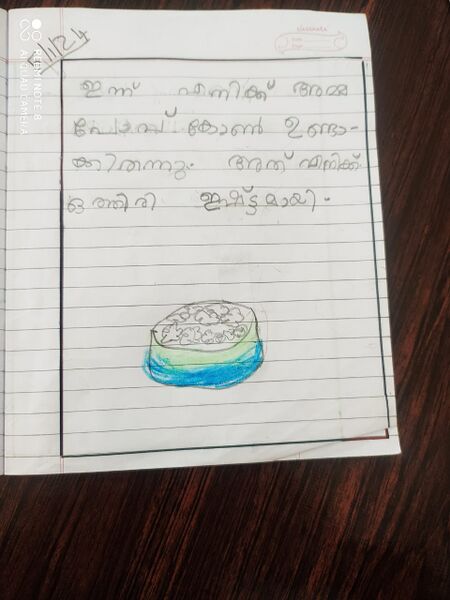 classmate
Date
Page
1/24
ഇന്ന് എനിക്ക് അമ്മ
പോപ്പ് കോൺ ഉണ്ടാ-
ക്കിതന്നു. അത് എനിക്ക്
ഒത്തിരി ഇഷ്ട്ടമായി.
REDMI NOTE 8
AI QUAD CAMERA